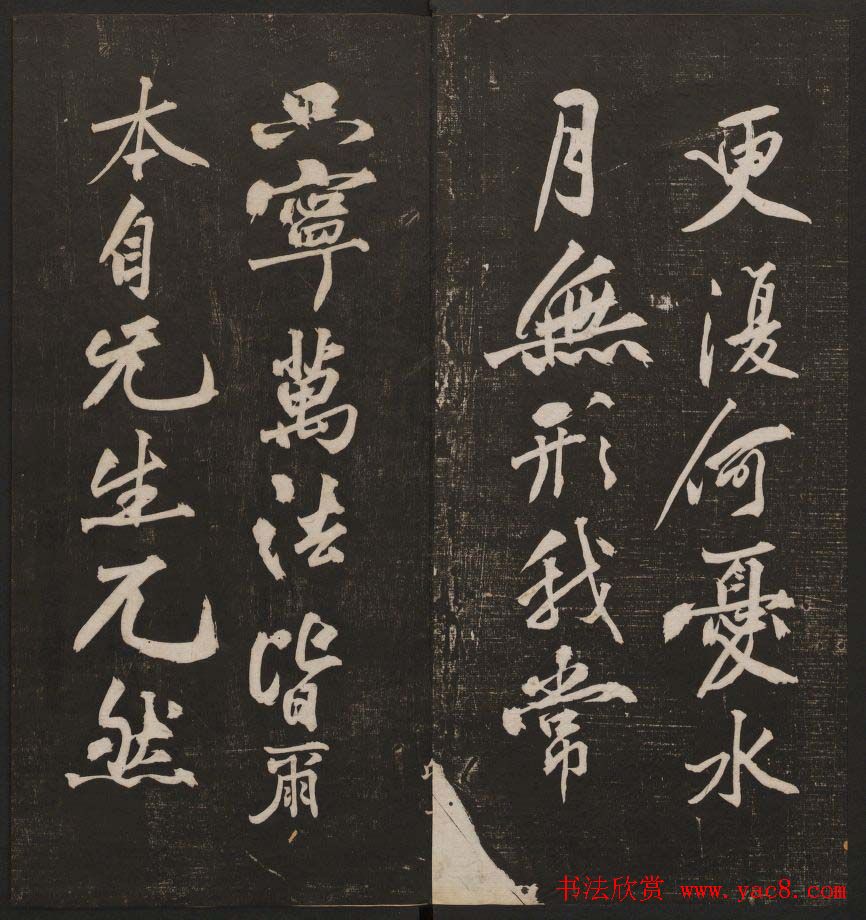 更復何憂水
月無形我常
只寧萬法皆爾
本自无生兀然
书法欣赏 www.yac8.com